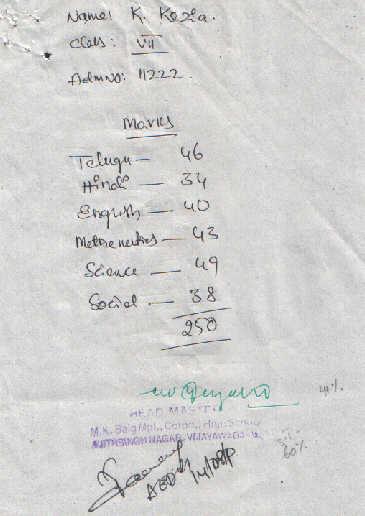 Name: K. Kezia.
Class: VII
Admno: 11222.
Marks
Telugu — 46
Hindi — 34
English — 40
Mathematics — 43
Science — 49
Social — 38
250
HEAD MASTER
M.K. Baig Mpl., Corpn., High School
AJITHSINGH NAGAR, VIJAYAWADA
60%